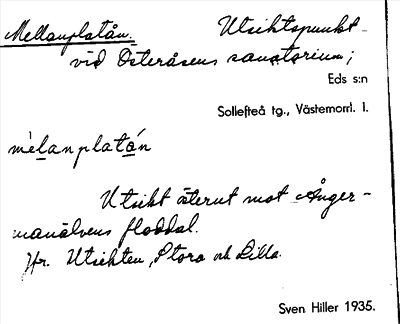 Mellanplatån. Utsiktspunkt
vid Österåsens sanatorium;
Eds s:n
Sollefteå tg., Västernorrl. l.
mèlanplatǻn
Utsikt österut mot Ånger-
manälvens floddal.
Jfr. Utsikten, Stora och Lilla.
Sven Hiller 1935.